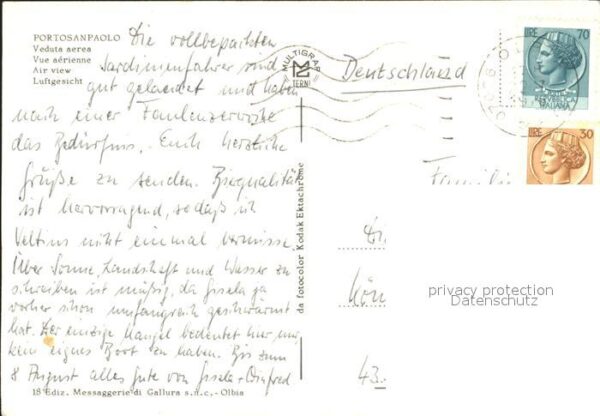 PORTOSANPAOLO
Veduta aerea
Vue aérienne
Air view
Luftgesicht
Die vollbepackten
Sardinienfahrer sind
gut gelandet und haben
nach einer Faulenzerwoche
das Bedürfnis, Euch herzliche
Grüße zu senden. Bierqualität
ist hervorragend, sodaß ich
Veltins nicht einmal vermisse.
Über Sonne, Landschaft und Wasser zu
schreiben ist müßig, da Gisela ja
vorher schon umfangreich geschwärmt
hat. Der einzige Mangel bedeutet hier nur,
kein eigenes Boot zu haben. Bis zum
8 August alles Gute von Gisela + Winfried
18 Ediz. Messaggerie di Gallura s.n.c. - Olbia
MULTIGRAF
TERNI
da fotocolor Kodak Ektachrome
Deutschland
LIRE 70
REPVBBLICA
ITALIANA
LIRE 30
Familie
Dr.
Kön
43
privacy protection
Datenschutz